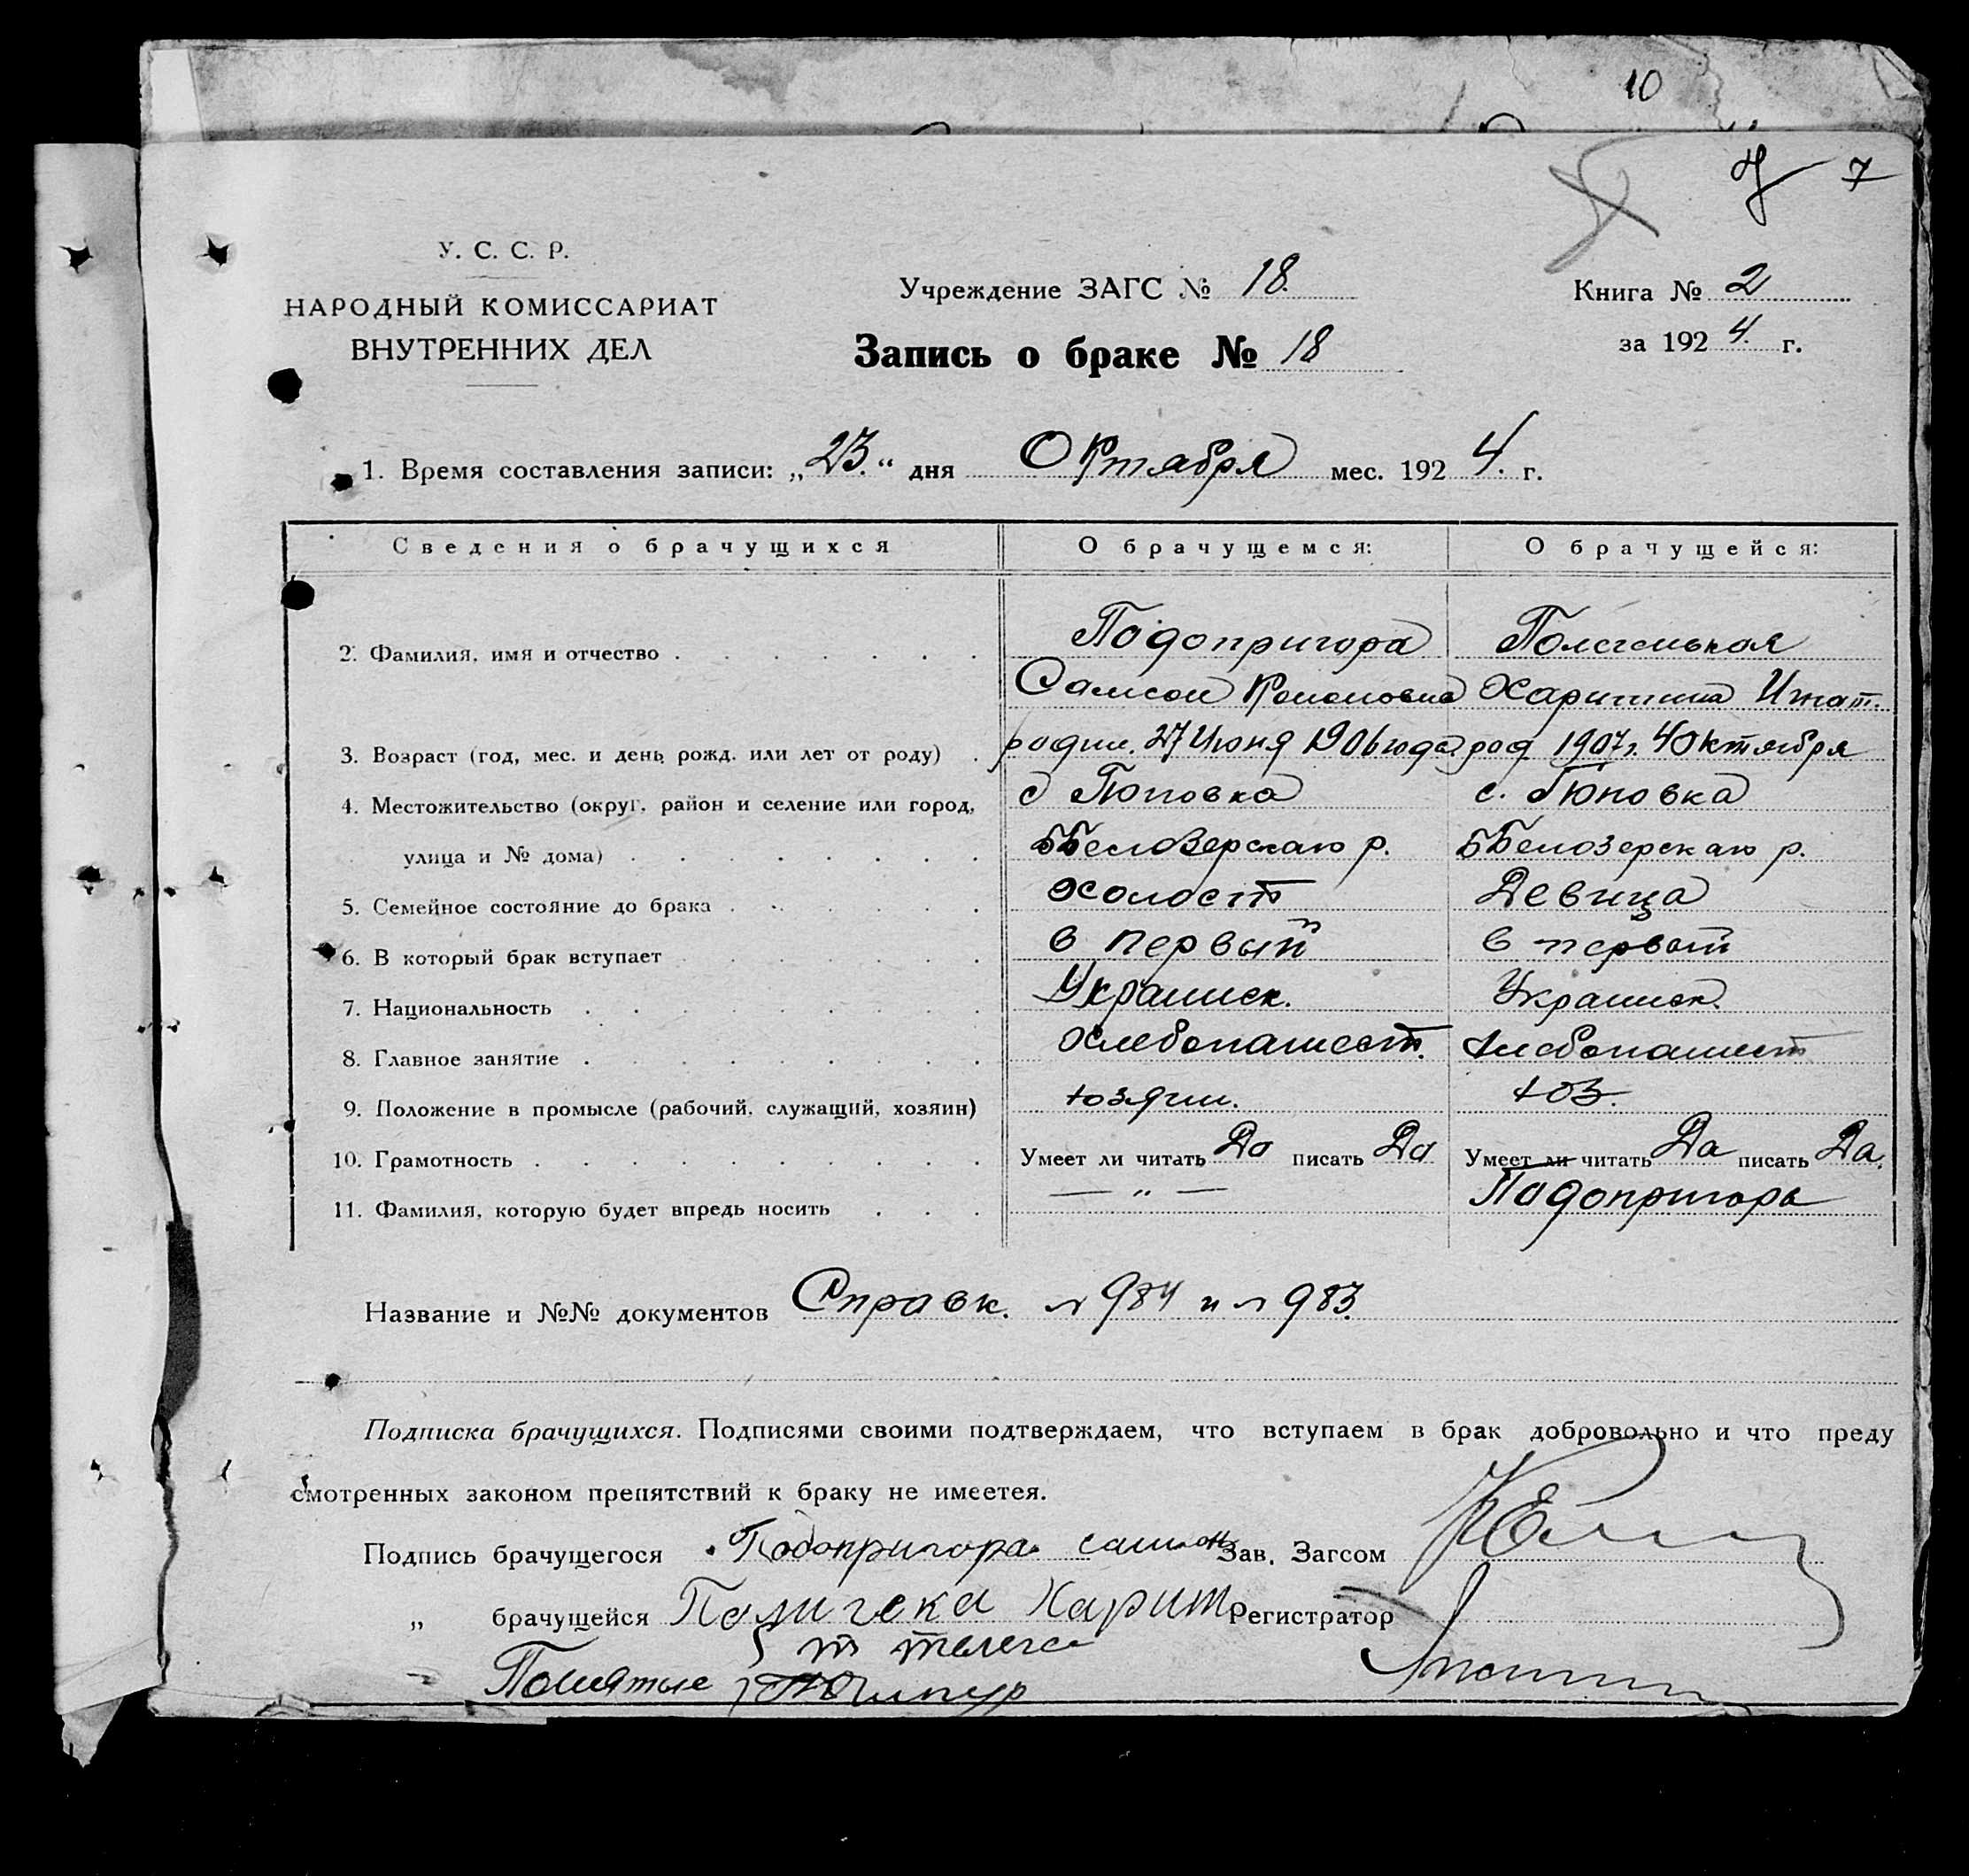 10
7
У. С. С. Р.
НАРОДНЫЙ КОМИССАРИАТ
ВНУТРЕННИХ ДЕЛ
Учреждение ЗАГС № 18.
Запись о браке № 18
Книга № 2
за 1924. г.
1. Время составления записи: „23.“ дня Октября мес. 1924. г.
Сведения о брачущихся О брачущемся: О брачущейся:
2. Фамилия, имя и отчество Подопригора
Самсон Харитина Игнат.
3. Возраст (год, мес. и день рожд. или лет от роду) родил. 27 Июня 1906 года. род. 1907 г. 4 Октября
4. Местожительство (округ, район и селение или город, с с.
улица и № дома) Белозерскаю р. Белозерскаю р.
5. Семейное состояние до брака Холост Девица
6. В который брак вступает в первый в первый
7. Национальность Украинск. Украинск.
8. Главное занятие Хлебопашест. Хлебопашест
9. Положение в промысле (рабочий, служащий, хозяин) хозяин. хоз.
10. Грамотность Умеет ли читать Да писать Да Умеет ли читать Да писать Да.
11. Фамилия, которую будет впредь носить — „ — Подопригора
Название и №№ документов Справк. № 984 и № 983.
Подписка брачущихся. Подписями своими подтверждаем, что вступаем в брак добровольно и что преду
смотренных законом препятствий к браку не имеетея.
Подпись брачущегося Подопригора самсон Зав. Загсом
„ брачущейся Харит Регистратор
Понятые